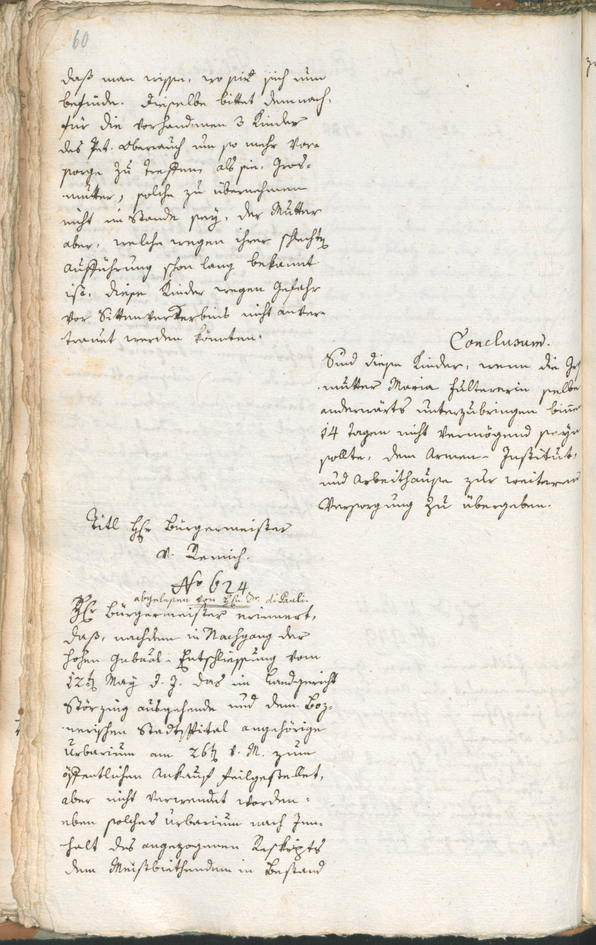 60
daß man wisse, wo sie sich nun
befinde. Dieselbe bittet demnach,
für die vorhandenen 3 Kinder
des Pet. Oberrauch um so mehr Vor-
sorge zu treffen, als sie, Gros-
mutter, solche zu übernehmen
nicht im Stande sey, der Mutter
aber, welche wegen ihrer schlechten
Aufführung schon lang bekannt
ist, diese Kinder wegen Gefahr
der Sittenverderbnis nicht anver-
trauet werden könnten.
Conclusum.
Sind diese Kinder, wenn die Gr
mutter Maria selbe
anderwärts unterzubringen binnen
14 Tagen nicht vermögend seyn
sollte, dem Armen-Institut,
und Arbeithause zur weiteren
Versorgung zu übergeben.
Titl Hr Bürgermeister
v. Remich.
No 624
abgelesen von Hn Dr. di Pauli.
Hr Bürgermeister erinnert,
daß, nachdem in Nachgang der
hohen Gubral-Entschliessung vom
12ten May d. J. das im Landgericht
Sterzing ausgehende und dem Boz-
nerischen Stadtspital angehörige
Urbarium am 26ten v. M. zum
öffentlichen Ankauf feilgestellet,
aber nicht verwendet worden,
eben solches Urbarium nach Inn-
halt des angezogenen Reskripts
dem Meistbiethenden in Bestand